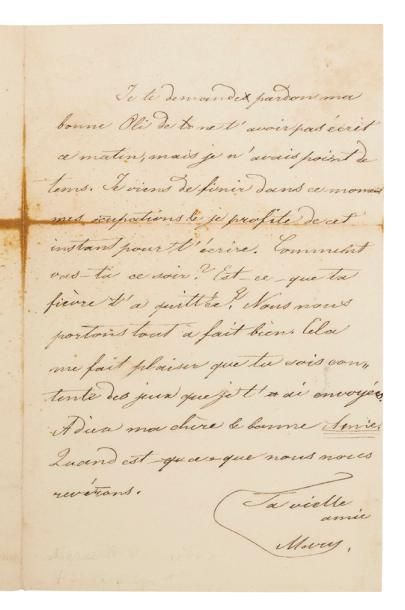 Je te demande pardon ma
bonne Oli de ne t'avoir pas écrit
ce matin, mais je n'avais point de
tems. Je viens de finir dans ce moment
mes ocupations & je profite de cet
instant pour t'écrire. Comment
vas-tu ce soir? Est-ce-que ta
fièvre t'a quittée? Nous nous
portons tout à fait bien. Cela
me fait plaiser que tu sois con„
tente des jeux que je t'ai envoyés.
Adieu ma chère & bonne Amie.
Quand est-ce-que nous nous
revérons.
Ta vielle
amie
Mary.